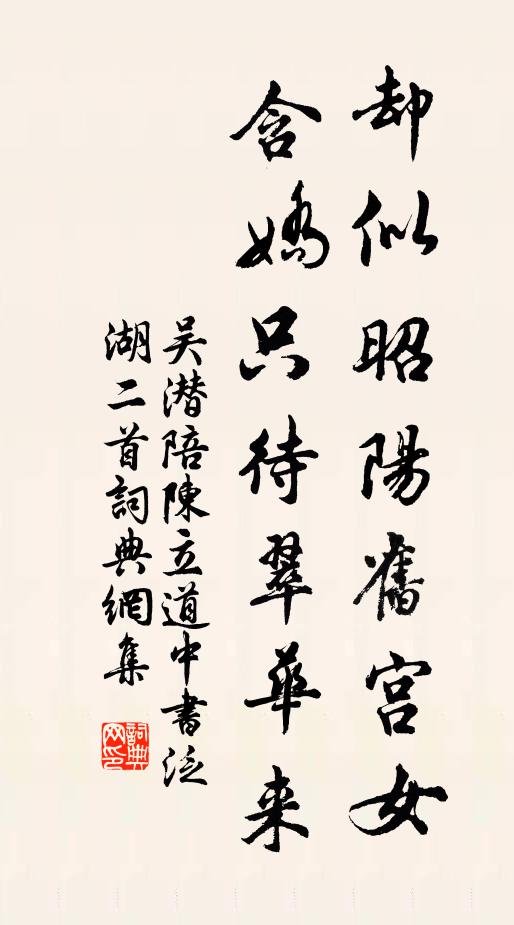 却似昭陽舊宮女
含嬌只待翠華来
吴潜陪陳立道中書泛
湖二首詞典網集
詞典网印